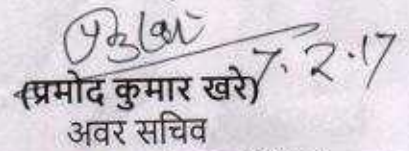 7.2.17
(प्रमोद कुमार खरे)
अवर सचिव